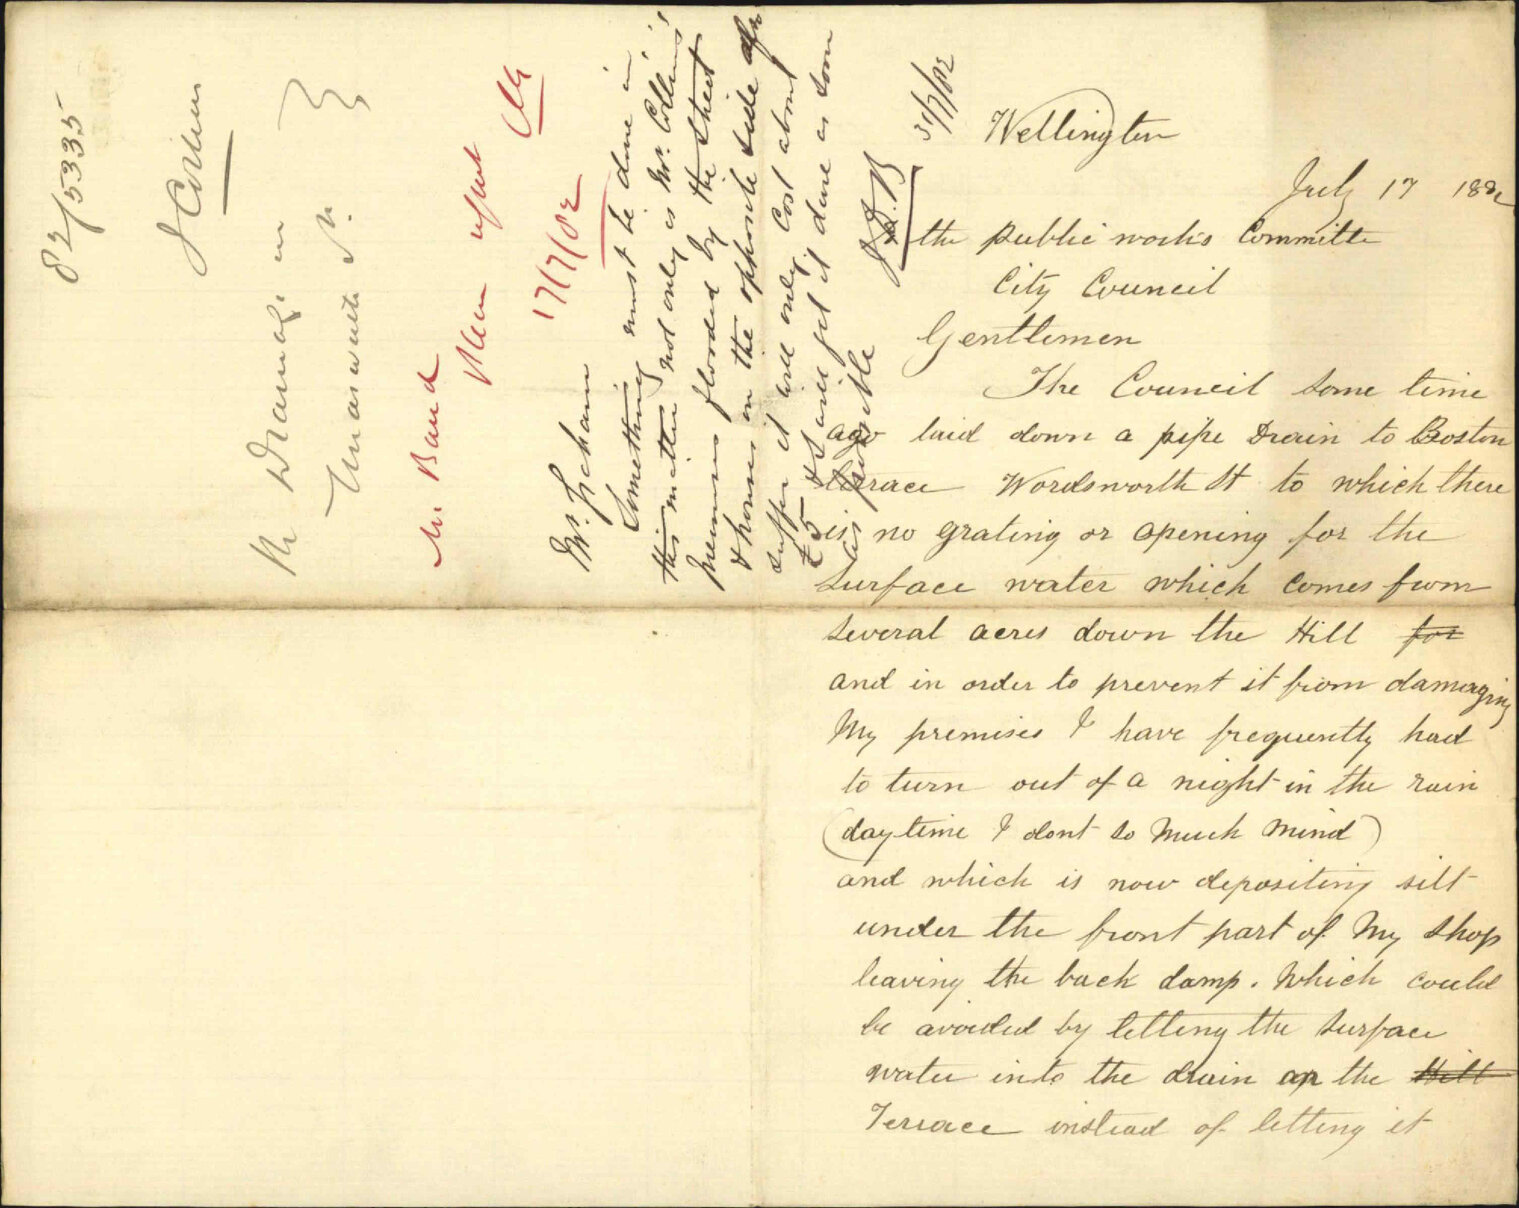 Wellington
July 17 1882
To the public works Committe
City Council
Gentlemen
The Council some time
ago laid down a pipe Drain to Boston
terrace Wordsworth St to which there
is no grating or opening for the
surface water which comes from
several acres down the Hill for
and in order to prevent it from damaging
My premises I have frequently had
to turn out of a night in the rain
(day time I dont so Much Mind)
and which is now depositing silt
under the front part of My shop
leaving the back damp. Which could
be avoided by letting the surface
water into the drain on the Hill
Terrace instead of letting it
82/5335
J Collins
Re Drainage in
Wordsworth St.
Mr. Baird
Please report
17/7/82
Something must be done in
this matter not only is Mr. Collins'
premises flooded by the street
& houses on the opposite side also
suffer it will only cost about
£5 & I will get it done as soon
as possible
31/7/82